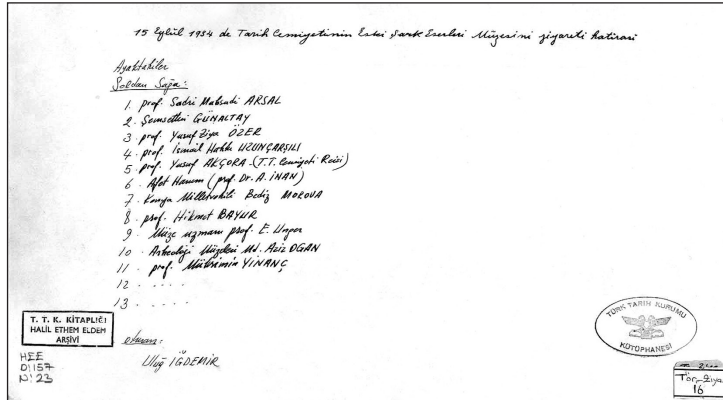 15 Eylül 1934 de Tarih Cemiyetinin Eski Şark Eserleri Müzesini ziyareti hatırası
Ayaktakiler
Soldan Sağa:
1. prof. Sadri Maksudi ARSAL
2. Şemsettin GÜNALTAY
3. prof. Yusuf Ziya ÖZER
4. prof. İsmail Hakkı UZUNÇARŞILI
5. prof. Yusuf AKÇORA (T.T. Cemiyeti Reisi)
6. Afet Hanım (prof. Dr. A. İNAN)
7. Konya Milletvekili Bediz MOROVA
8. prof. Hikmet BAYUR
9. Müze uzmanı prof. E. Unger
10. Arkeoloji Müzeleri Md. Aziz OGAN
11. prof. Mükrimin YİNANÇ
12 . . . . .
13 . . . . .
oturan:
Uluğ İĞDEMİR
T. T. K. KİTAPLIĞI
HALİL ETHEM ELDEM
ARŞİVİ
HEE
D1157
N: 23
TÜRK TARİH KURUMU
KÜTÜPHANESİ
16